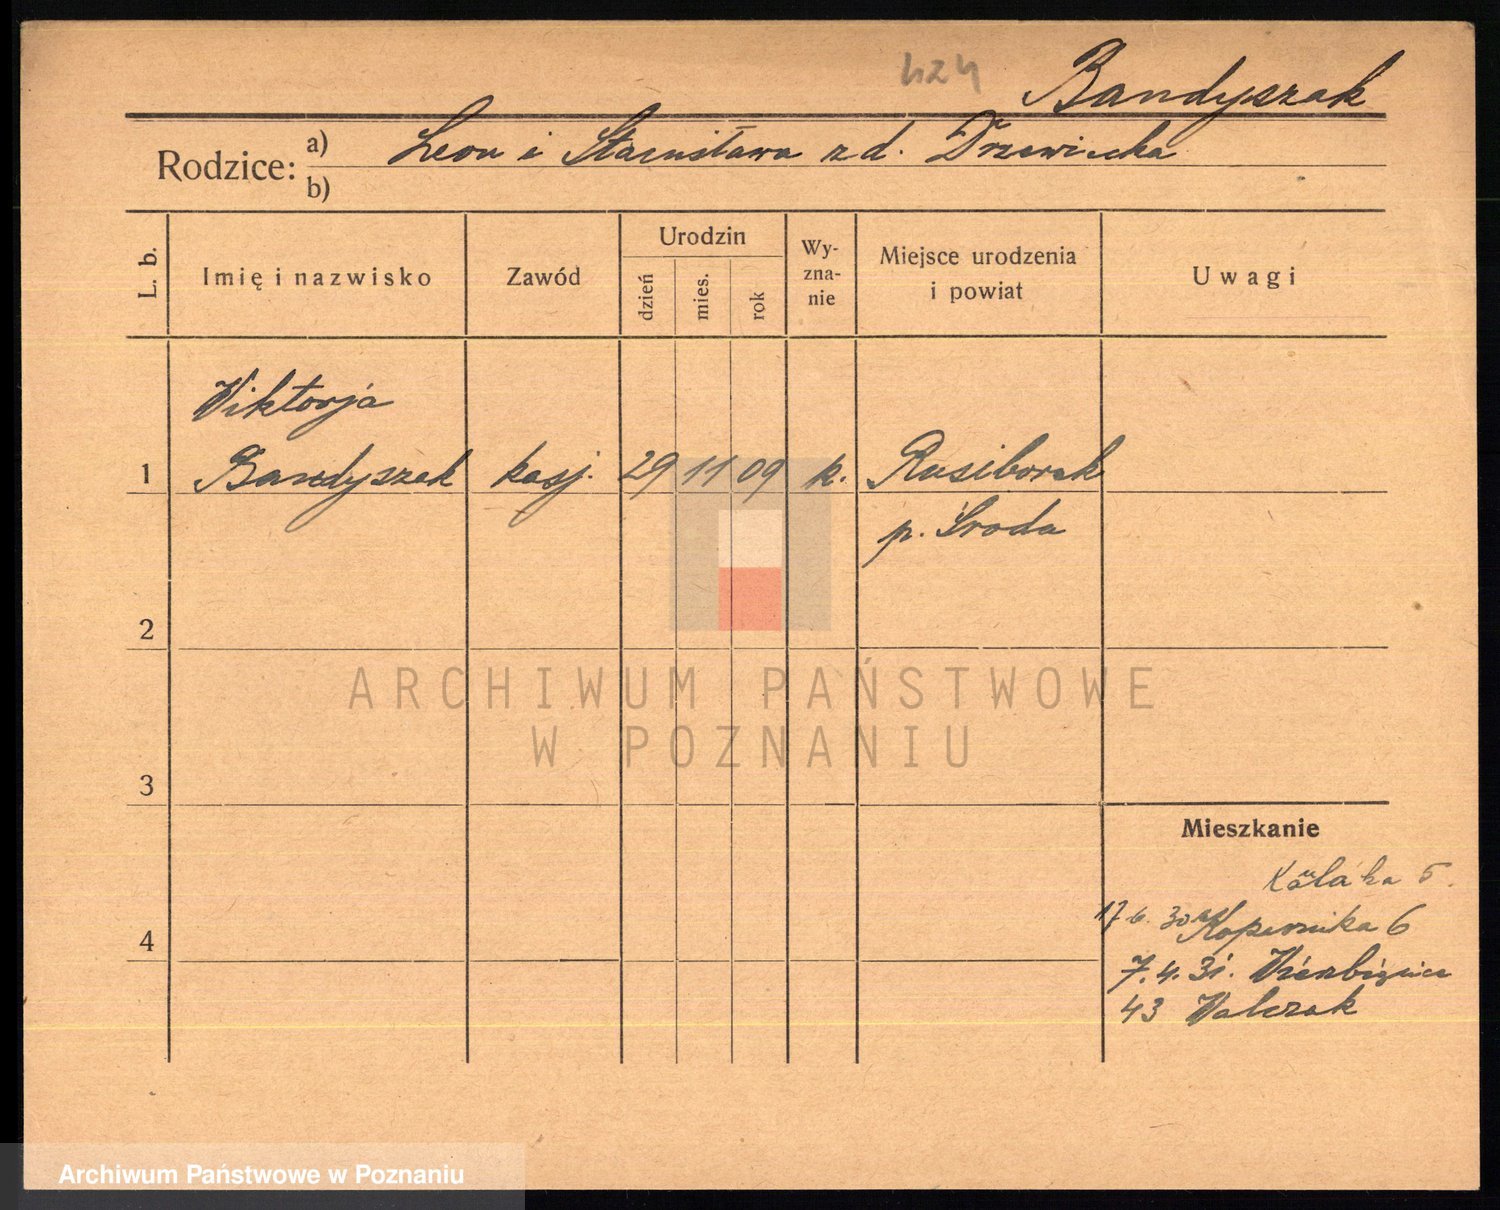 424
Bandyszak
Rodzice: a) Leon i Stanisława z d. Drzewiecka
b)
L. b.
Imię i nazwisko
Zawód
Urodzin
dzień
mies.
rok
Wy-
zna-
nie
Miejsce urodzenia
i powiat
Uwagi
Wiktorja
1 Bandyszak kasj. 29 11 09 k. Rusiborek
p. Środa
2
3
4
Mieszkanie
5.
17.6.30 Kopernika 6
7.4.31. Wierzbięcice
43 Walczak
ARCHIWUM PAŃSTWOWE
W POZNANIU
Archiwum Państwowe w Poznaniu